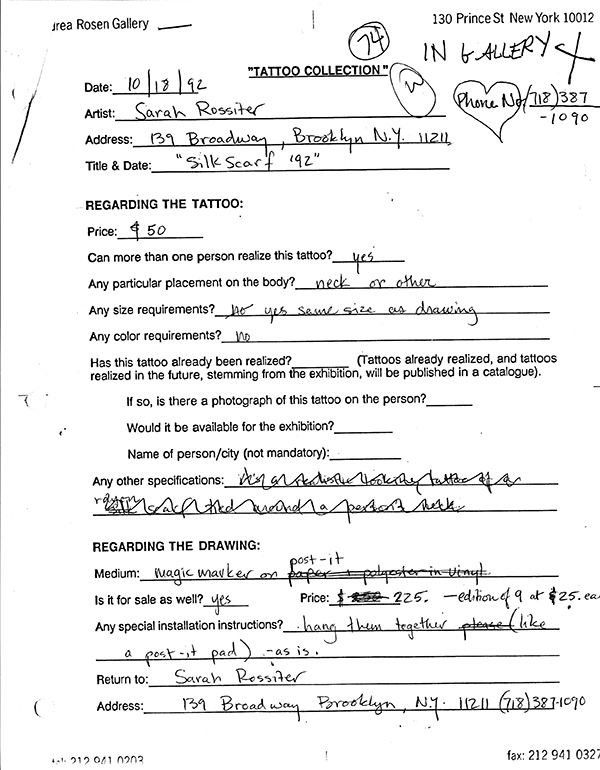 rea Rosen Gallery
130 Prince St New York 10012
74
IN GALLERY
"TATTOO COLLECTION"
Date: 10/18/92
Phone No (718)387-1090
Artist: Sarah Rossiter
Address: 139 Broadway, Brooklyn N.Y. 11211
Title & Date: "Silk Scarf '92"
REGARDING THE TATTOO:
Price: $50
Can more than one person realize this tattoo? yes
Any particular placement on the body? neck or other
Any size requirements? no yes same size as drawing
Any color requirements? no
Has this tattoo already been realized? (Tattoos already realized, and tattoos
realized in the future, stemming from the exhibition, will be published in a catalogue).
If so, is there a photograph of this tattoo on the person?
Would it be available for the exhibition?
Name of person/city (not mandatory):
Any other specifications: looking tattoo of a
scarf tied around a person's neck
REGARDING THE DRAWING:
post-it
Medium: magic marker on paper + polyester in vinyl
Is it for sale as well? yes Price: $ 225. - edition of 9 at $25. ea
Any special installation instructions? hang them together please (like
a post-it pad) - as is.
Return to: Sarah Rossiter
Address: 139 Broadway Brooklyn, NY. 11211 (718)387-1090
tel: 212 941 0203
fax: 212 941 0327